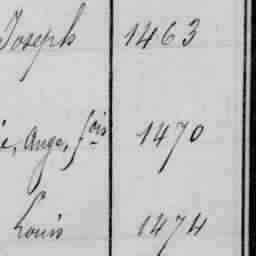 Joseph 1463
e, Ange, fois 1470
Louis 1474